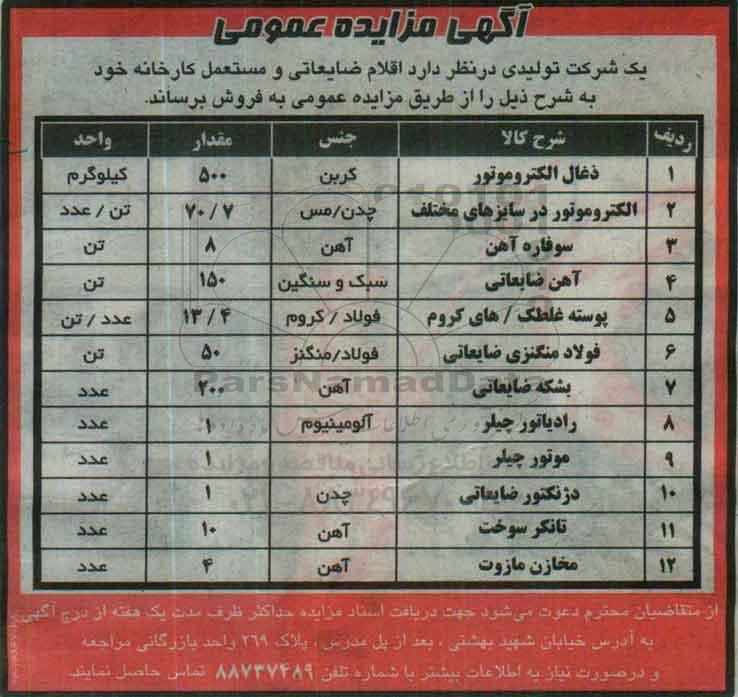 آگهی مزایده عمومی
یک شرکت تولیدی درنظر دارد اقلام ضایعاتی و مستعمل کارخانه خود
به شرح ذیل را از طریق مزایده عمومی به فروش برساند.
ردیف شرح کالا جنس مقدار واحد
۱ ذغال الکتروموتور کربن ۵۰۰ کیلوگرم
۲ الکتروموتور در سایزهای مختلف چدن/مس ۷۰/۷ تن / عدد
۳ سوفاره آهن آهن ۸ تن
۴ آهن ضایعاتی سبک و سنگین ۱۵۰ تن
۵ پوسته غلطک / های کروم فولاد / کروم ۱۳/۴ عدد / تن
۶ فولاد منگنزی ضایعاتی فولاد/منگنز ۵۰ تن
۷ بشکه ضایعاتی آهن ۴۰۰ عدد
۸ رادیاتور چیلر آلومینیوم ۱ عدد
۹ موتور چیلر ۱ عدد
۱۰ دژنکتور ضایعاتی چدن ۱ عدد
۱۱ تانکر سوخت آهن ۱۰ عدد
۱۲ مخازن مازوت آهن ۴ عدد
ParsNamadData
از متقاضیان محترم دعوت می‌شود جهت دریافت اسناد مزایده حداکثر ظرف مدت یک هفته از درج آگهی
به آدرس خیابان شهید بهشتی ، بعد از پل مدرس ، پلاک ۲۶۹ واحد بازرگانی مراجعه
و درصورت نیاز به اطلاعات بیشتر با شماره تلفن ۸۸۷۳۷۴۸۹ تماس حاصل نمایند.